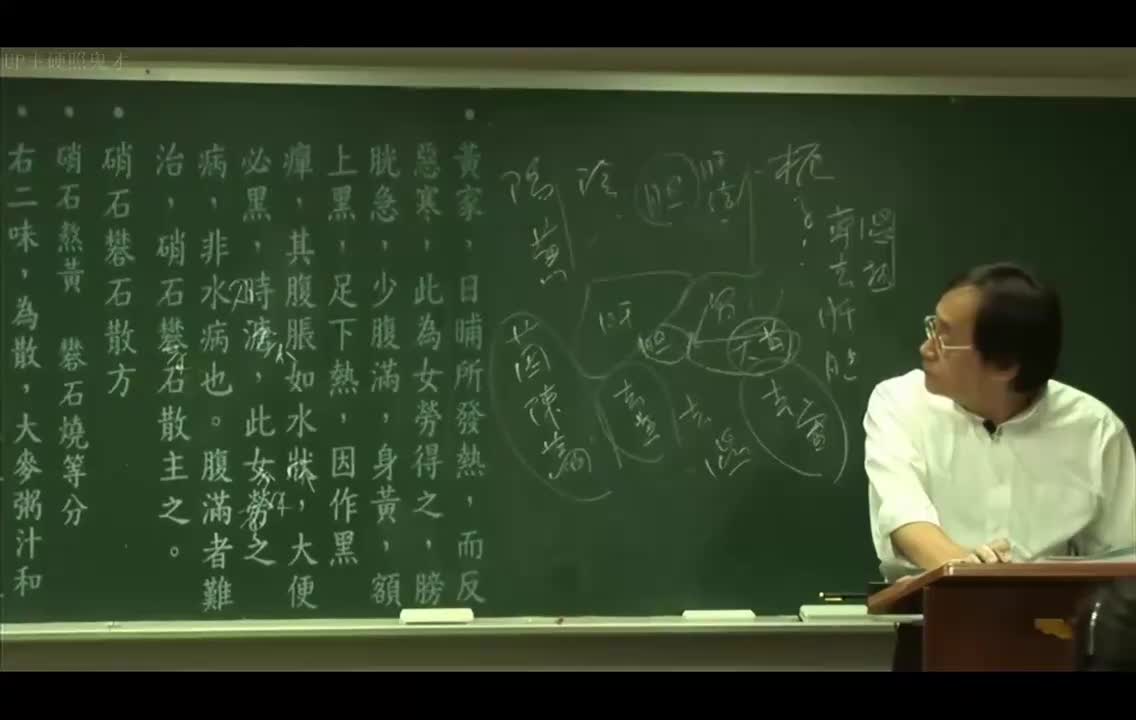 UP卡硬照鬼才
黃家，日晡所發熱，而反
惡寒，此為女勞得之，膀
胱急，少腹滿，身黃，額
上黑，足下熱，因作黑
癉，其腹脹如水狀，大便
必黑，時溏，此女勞之
病，非水病也。腹滿者難
治，硝石礬石散主之。
硝石礬石散方
硝石熬黃 礬石燒等分
右二味，為散，大麥粥汁和
梔子
專去肝胆
濕熱
陰
胆
陽黃
肝
胆
胃
大黃
茵陳蒿
去黃
去濕